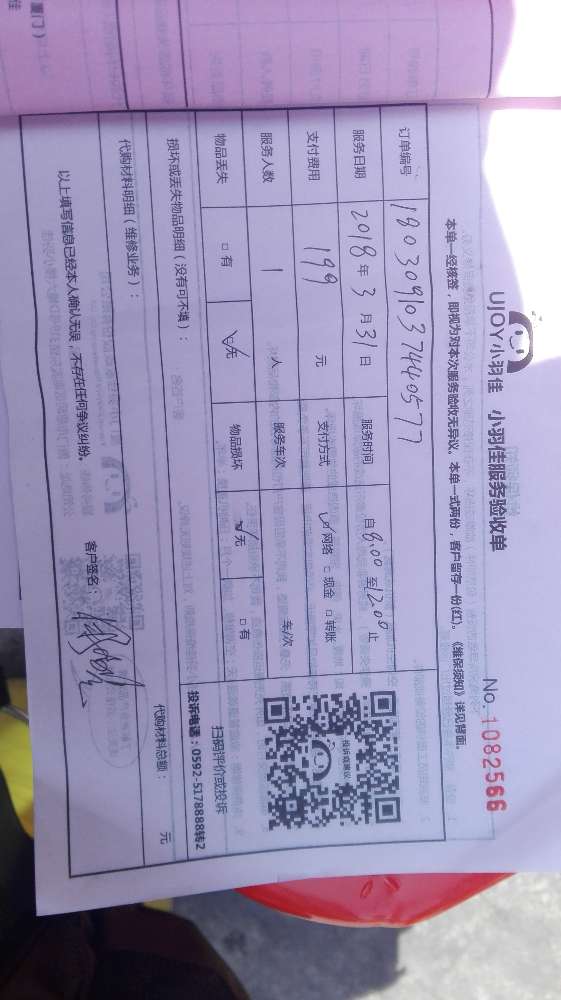 UJOY小羽佳 小羽佳服务验收单
No. 1082566
本单一经核签，即视为对本次服务验收无异议。本单一式两份，客户留存一份(红)。《维保须知》详见背面。
订单编号 1803091037440577
服务日期 2018年3月31日 服务时间 自8:00至12:00止
支付费用 199 元 支付方式 ☑网络 □现金 □转账
服务人数 1 人 服务车次 车/次
物品丢失 □有 ☑无 物品损坏 ☑无 □有
损坏或丢失物品明细（没有可不填）：
代购材料明细（维修业务）：
代购材料总额： 元
投诉或建议
扫码评价或投诉
投诉电话：0592-5178888转2
以上填写信息已经本人确认无误，不存在任何争议纠纷。
客户签名：
厦门）